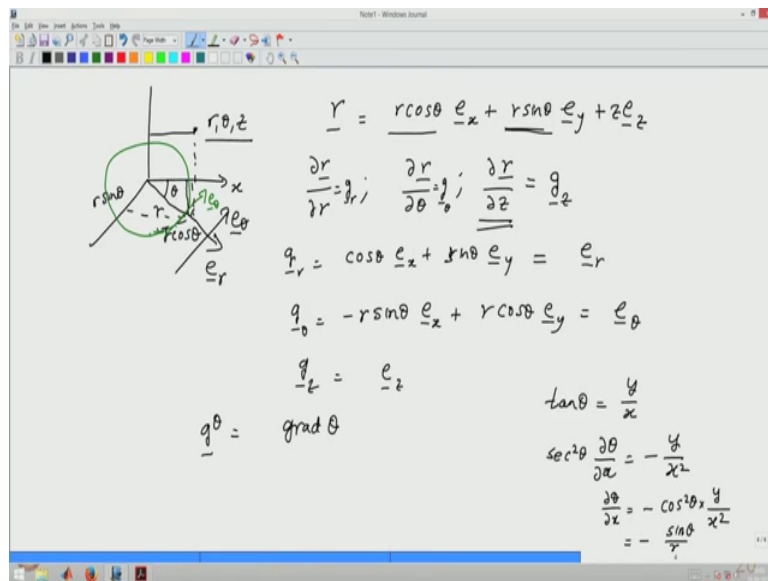 Note1 - Windows Journal
File Edit View Insert Actions Tools Help
Page Width
B I
r, θ, z
x
θ
r sinθ
r
r cosθ
e_θ
e_θ
e_r
r = r cosθ e_x + r sinθ e_y + z e_z
∂r/∂r = g_r ; ∂r/∂θ = g_θ ; ∂r/∂z = g_z
g_r = cosθ e_x + sinθ e_y = e_r
g_θ = -r sinθ e_x + r cosθ e_y = e_θ
g_z = e_z
g^θ = grad θ
tanθ = y/x
sec²θ ∂θ/∂x = - y/x²
∂θ/∂x = - cos²θ × y/x²
= - sinθ/r